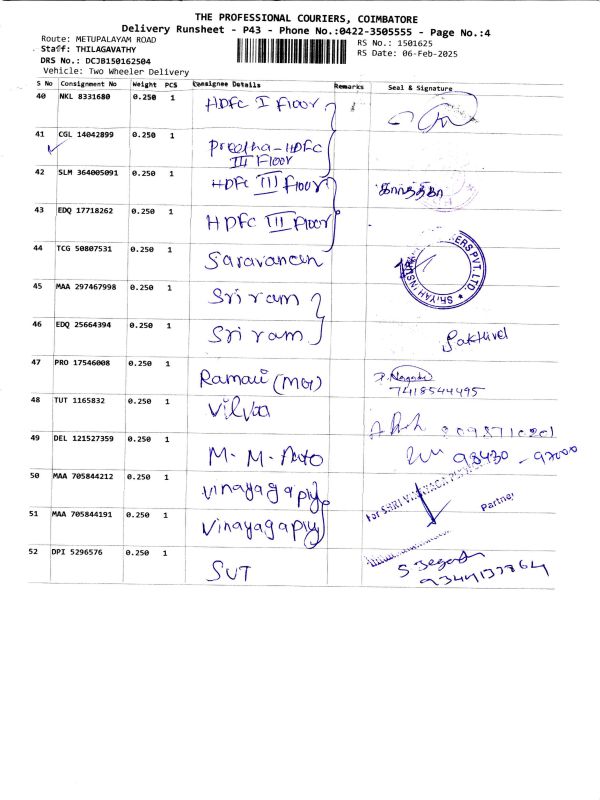 THE PROFESSIONAL COURIERS, COIMBATORE
Delivery Runsheet - P43 - Phone No.:0422-3505555 - Page No.:4
Route: METUPALAYAM ROAD
RS No.: 1501625
Staff: THILAGAVATHY
RS Date: 06-Feb-2025
DRS No.: DCJB150162504
Vehicle: Two Wheeler Delivery
S No Consignment No Weight PCS Consignee Details Remarks Seal & Signature
40 NKL 8331680 0.250 1 HDFC I Floor
41 CGL 14042899 0.250 1 Preetha-HDFC
III Floor
42 SLM 364005091 0.250 1 HDFC III Floor கார்த்திகா
43 EDQ 17718262 0.250 1 HDFC III Floor
44 TCG 50807531 0.250 1 Saravanan
45 MAA 297467998 0.250 1 Sri ram
46 EDQ 25664394 0.250 1 Sri ram Sakthivel
47 PRO 17546008 0.250 1 Ramani (MGT) P. Nagamani
7418544495
48 TUT 1165832 0.250 1 Vilvaa
49 DEL 121527359 0.250 1 M. M. Auto
50 MAA 705844212 0.250 1 Vinayaga ply
For SHRI VINAYAGA
Partner
51 MAA 705844191 0.250 1 Vinayaga ply
52 DPI 5296576 0.250 1 SUT